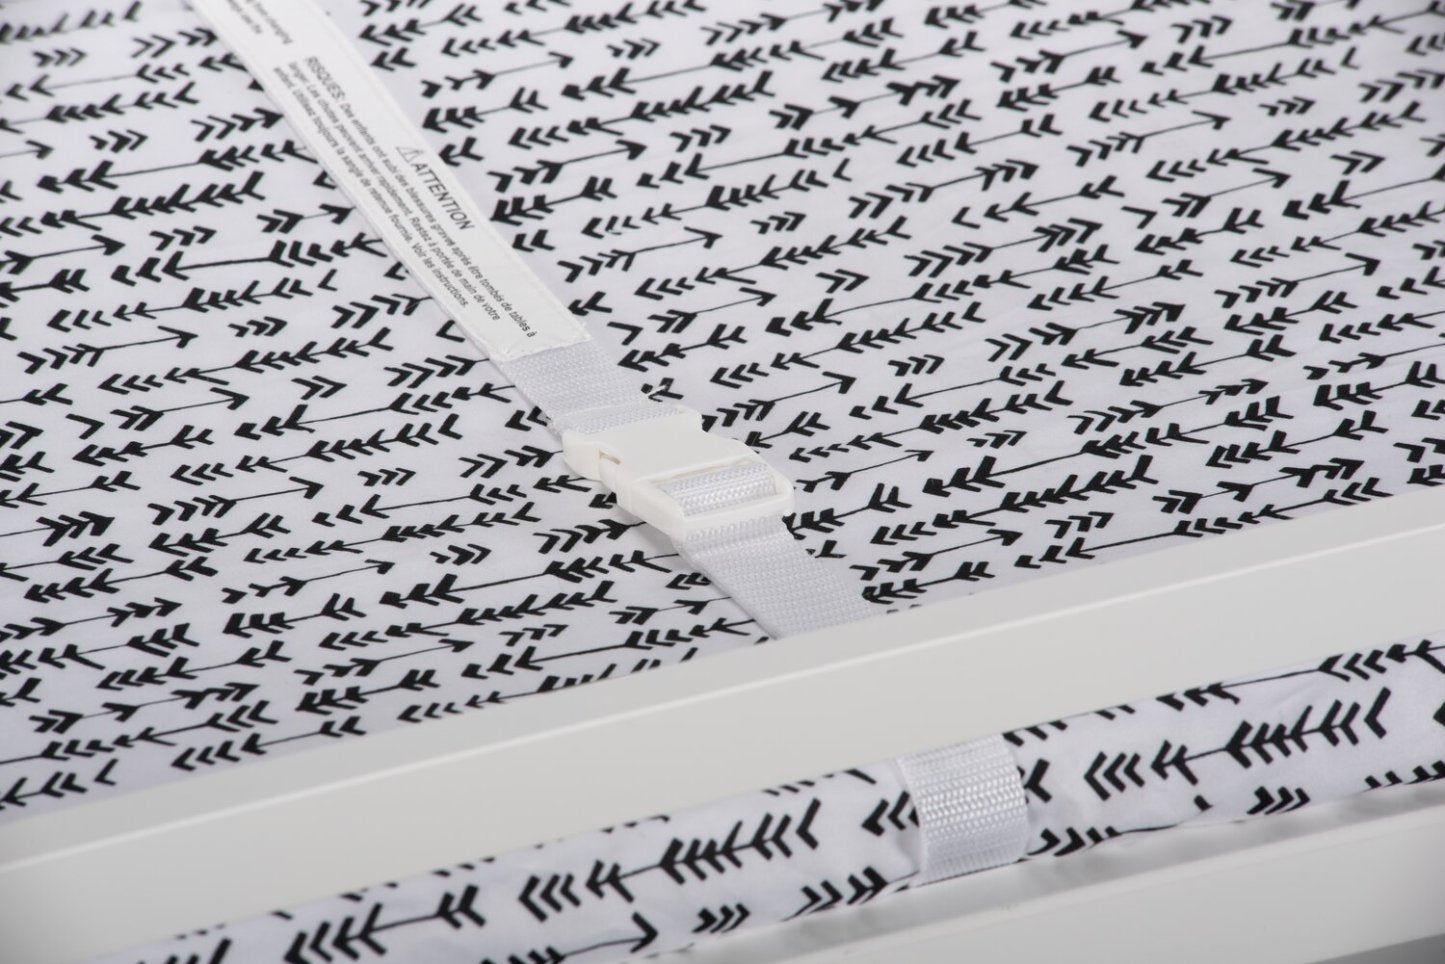 from changing
⚠ATTENTION
RISQUES: Des enfants ont subi des blessures graves après être tombés de tables à
langer. Les chutes peuvent arriver rapidement. Restez à portée de main de votre
enfant. Utilisez toujours la sangle de retenue fournie. Voir les instructions.